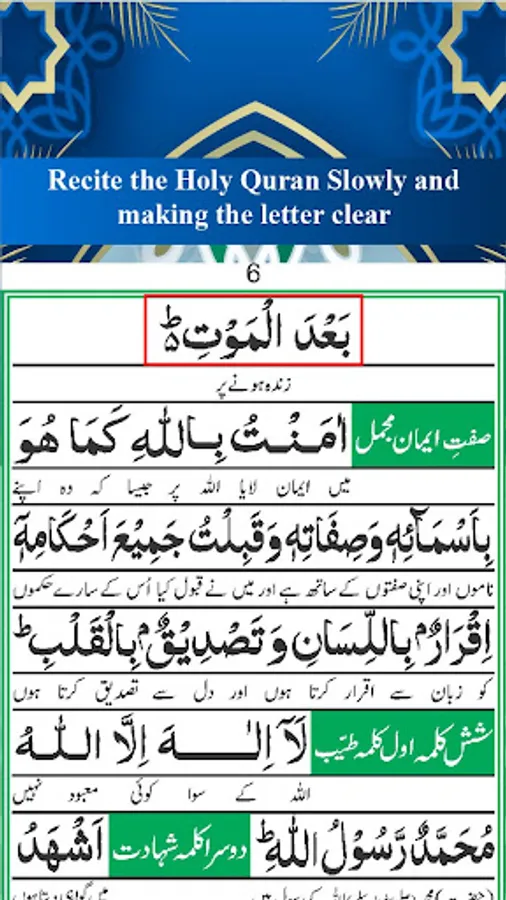 Recite the Holy Quran Slowly and
making the letter clear
6
بَعْدَ الْمَوْتِ ؕ
زندہ ہونے پر
صفتِ ایمان مجمل اٰمَنْتُ بِاللّٰهِ كَمَا هُوَ
میں ایمان لایا اللہ پر جیسا کہ وہ اپنے
بِاَسْمَآئِهٖ وَصِفَاتِهٖ وَقَبِلْتُ جَمِيْعَ اَحْكَامِهٖٓ
ناموں اور اپنی صفتوں کے ساتھ ہے اور میں نے قبول کیا اُس کے سارے حکموں
اِقْرَارٌ ۢ بِاللِّسَانِ وَ تَصْدِيْقٌ ۢ بِالْقَلْبِ ؕ
کو زبان سے اقرار کرتا ہوں اور دل سے تصدیق کرتا ہوں
شش کلمہ اول کلمہ طیّب لَآ اِلٰهَ اِلَّا اللّٰهُ
اللہ کے سوا کوئی معبود نہیں
مُحَمَّدٌ رَّسُوْلُ اللّٰهِ ؕ دوسرا کلمہ شہادت اَشْهَدُ